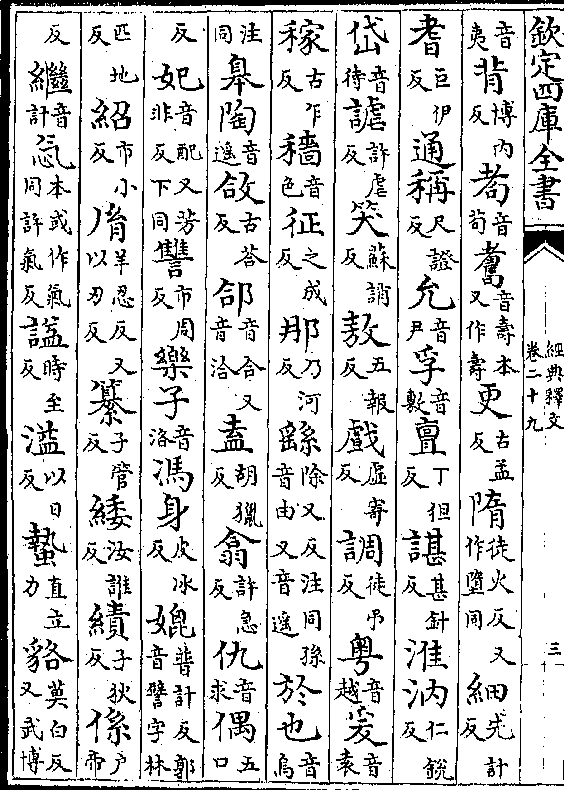 欽定四庫全書
經典釋文
卷二十九
三
音夷背博内反耇音苟音壽本又作壽更古孟反隋徒火反又作墮同細先計反
耆巨伊反通稱尺證反允音尹孚音敷亶丁但反諶甚針反淮汭仁銳反
岱音待謔許虐反笑蘇誚反敖五報反戲虛寄反調徒弔反粤音越爰音袁
稼古乍反穡音色征之成反那乃河反繇除又反注同孫音由又音遥於也音烏
注同皋陶音遥敆古荅反郃音合又音洽盍胡獵反翕許急反仇音求偶五口
反妃音配又芳非反下同讎市周反樂子音洛馮身皮冰反媲普計反郭音譬字林
匹地反紹市小反胤羊忍反又以刃反纂子管反緌汝誰反績子狄反係户帝
反繼音計忥本或作氣同許氣反謚時至反溢以日反蟄直立力貉莫白反又武博